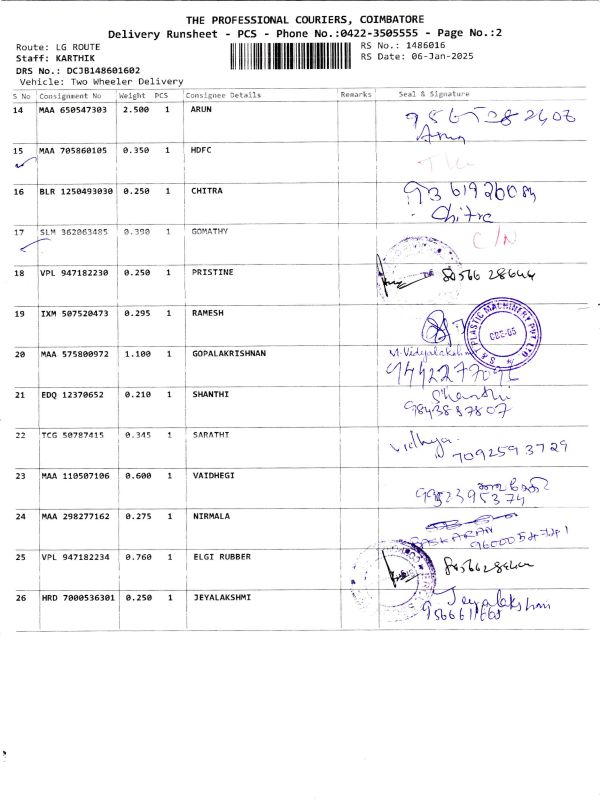 THE PROFESSIONAL COURIERS, COIMBATORE
Delivery Runsheet - PCS - Phone No.:0422-3505555 - Page No.:2
Route: LG ROUTE
Staff: KARTHIK
DRS No.: DCJB148601602
Vehicle: Two Wheeler Delivery
RS No.: 1486016
RS Date: 06-Jan-2025
S No Consignment No Weight PCS Consignee Details Remarks Seal & Signature
14 MAA 650547303 2.500 1 ARUN
15 MAA 705860105 0.350 1 HDFC
16 BLR 1250493030 0.250 1 CHITRA
Chitra
17 SLM 362063485 0.390 1 GOMATHY C/N
18 VPL 947182230 0.250 1 PRISTINE
19 IXM 507520473 0.295 1 RAMESH
S & T PLASTIC MACHINERY PVT LTD
CBE-05
20 MAA 575800972 1.100 1 GOPALAKRISHNAN M.Vidyalakshmi
21 EDQ 12370652 0.210 1 SHANTHI Shanthi
9843887807
22 TCG 50787415 0.345 1 SARATHI Vidhya
7092593729
23 MAA 110507106 0.600 1 VAIDHEGI
9952395374
24 MAA 298277162 0.275 1 NIRMALA
BASKARAN
25 VPL 947182234 0.760 1 ELGI RUBBER
26 HRD 7000536301 0.250 1 JEYALAKSHMI Jeyalakshmi